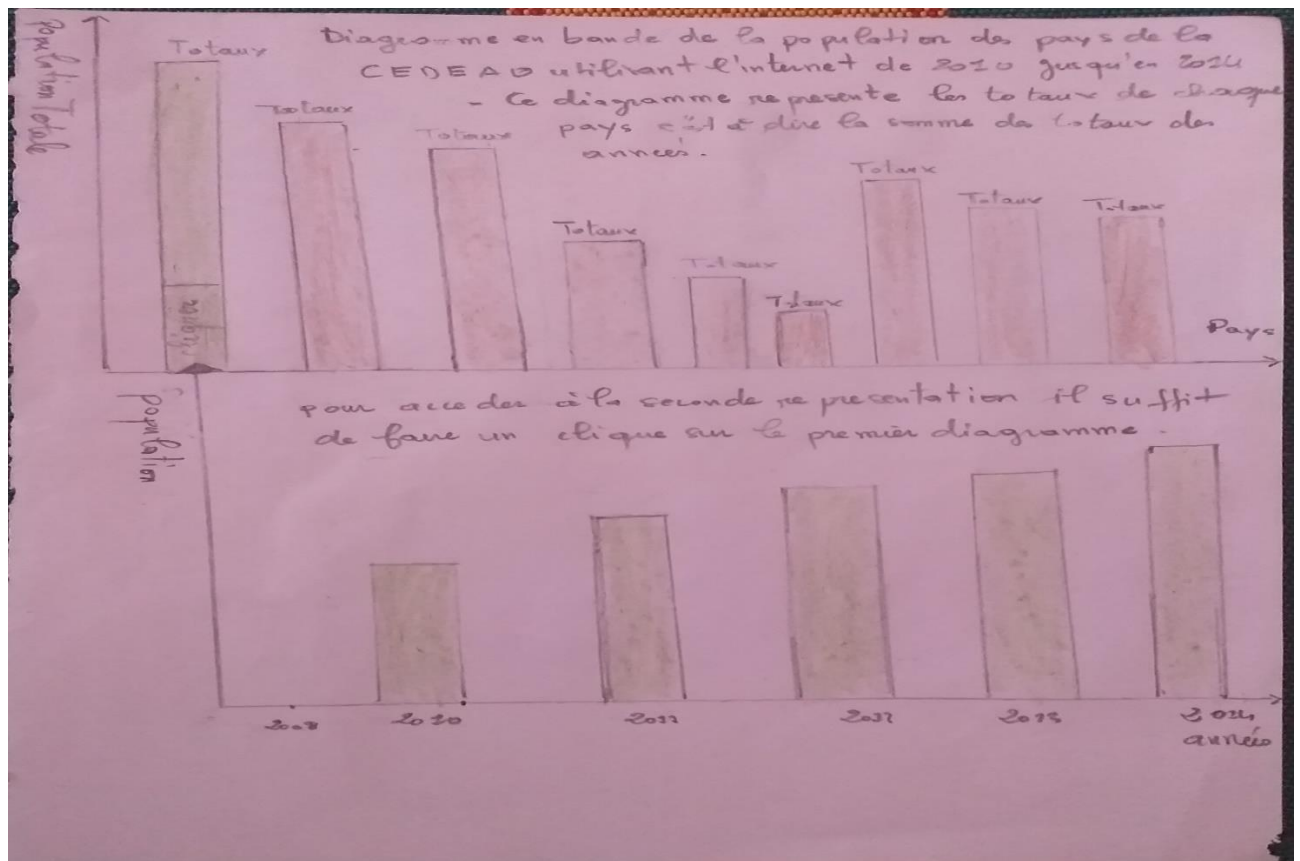 Population Totale
Diagramme en bande de la population des pays de la
CEDEAO utilisant l'internet de 2010 jusqu'en 2014
- Ce diagramme represente les totaux de chaque
pays c'est à dire la somme des totaux des
années.
Totaux
Totaux
Totaux
Totaux
Totaux
Totaux
Totaux
Totaux
Totaux
Pays
Population
pour acceder à la seconde representation il suffit
de faire un clique sur le premier diagramme.
2010
2011
2012
2013
2014
années